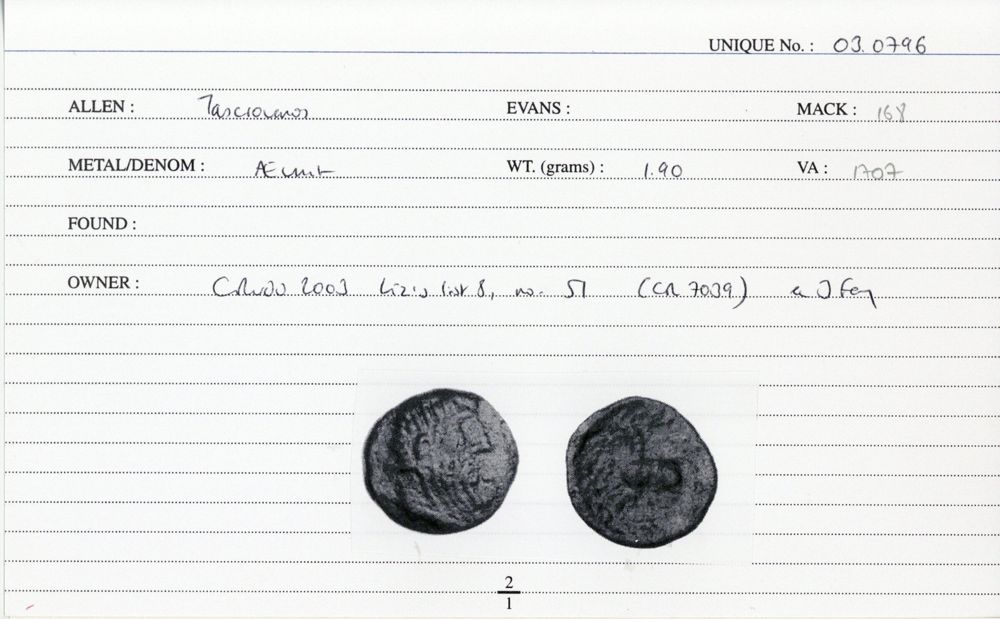 UNIQUE No. : 03.0796
ALLEN : Tasciovanos EVANS : MACK : 168
METAL/DENOM : Æ unit WT. (grams) : 1.90 VA : 1707
FOUND :
OWNER : 2003 Liz's list 8, no. 51 (CR 7039)
2
1